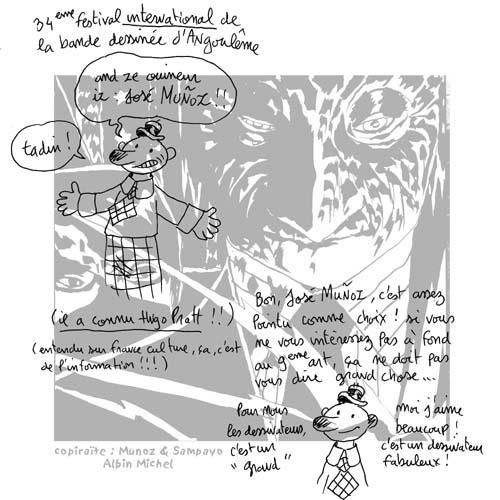 34eme festival international de
la bande dessinée d'Angoulême
and ze ouineur
iz : José MUÑOZ !!
tadin !
(il a connu Hugo Pratt !!)
(entendu sur france culture, ça, c'est
de l'information !!!)
Bon, José MUÑOZ, c'est assez
pointu comme choix ! si vous
ne vous intéressez pas à fond
au 9eme art, ça ne doit pas
vous dire grand chose...
Pour nous
les dessinateurs,
c'est un
"grand"
moi j'aime
beaucoup !
c'est un dessinateur
fabuleux !
copiraïte : Munoz & Sampayo
Albin Michel